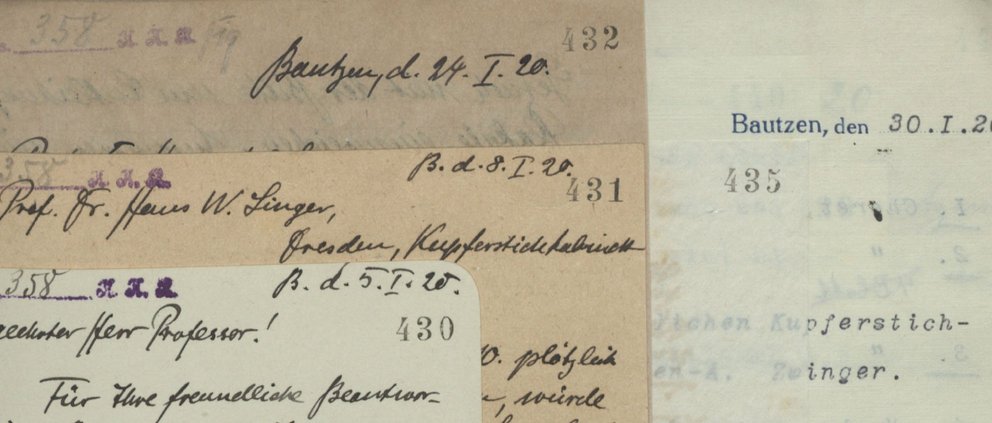 358 K. K. K.
432
Bautzen, d. 24. I. 20.
358 K. K. K.
B. d. 8. I. 20.
431
Prof. Dr. Hans W. Singer,
Dresden, Kupferstichkabinett
358 K. K. K.
B. d. 5. I. 20.
430
Herr Professor!
Für Ihre freundliche Beantwor-
plötzlich
würde
Bautzen, den 30.I.20
435
lichen Kupferstich-
en-A. Zwinger.